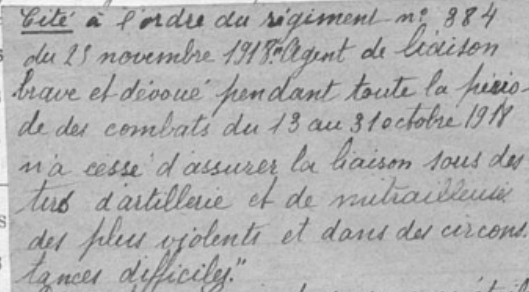 Cité à l'ordre du régiment n° 884
du 25 novembre 1918 "Agent de liaison
brave et dévoué pendant toute la pério-
de des combats du 13 au 31 octobre 1918
n'a cessé d'assurer la liaison sous des
tirs d'artillerie et de mitrailleuses
des plus violents et dans des circons
tances difficiles."